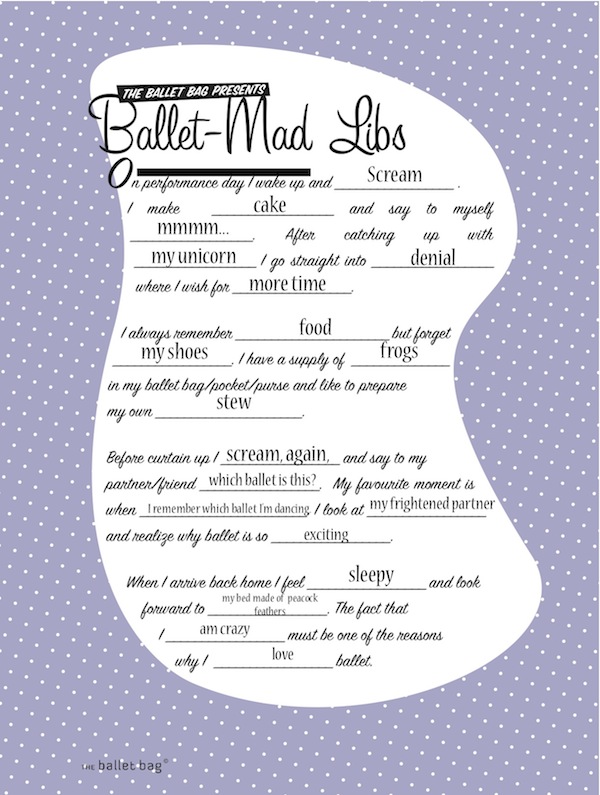 THE BALLET BAG PRESENTS
Ballet-Mad Libs
On performance day I wake up and Scream .
I make cake and say to myself
mmmm... . After catching up with
my unicorn I go straight into denial
where I wish for more time.
I always remember food but forget
my shoes. I have a supply of frogs
in my ballet bag/pocket/purse and like to prepare
my own stew.
Before curtain up I scream, again, and say to my
partner/friend which ballet is this?. My favourite moment is
when I remember which ballet I'm dancing. I look at my frightened partner
and realize why ballet is so exciting.
When I arrive back home I feel sleepy and look
forward to my bed made of peacock
feathers. The fact that
I am crazy must be one of the reasons
why I love ballet.
THE ballet bag©